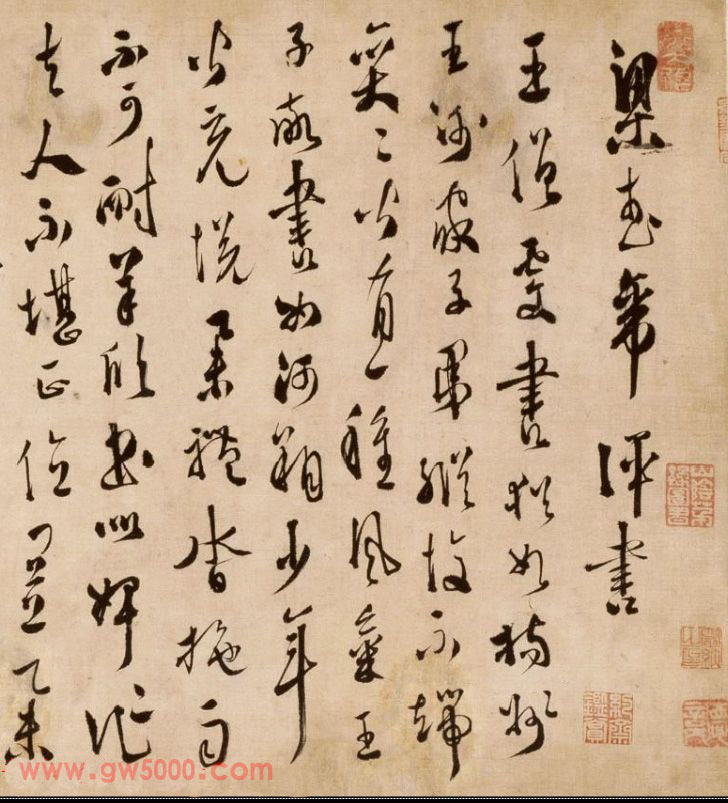 梁武帝評書
王僧虔書猶如揚州
王謝家子弟縱復不端
奕〻皆有一種風氣王
子敬書如河朔少年
皆充悅舉體沓拖而
不可耐羊欣書似婢作
夫人不堪正位置舉
www.gw5000.com